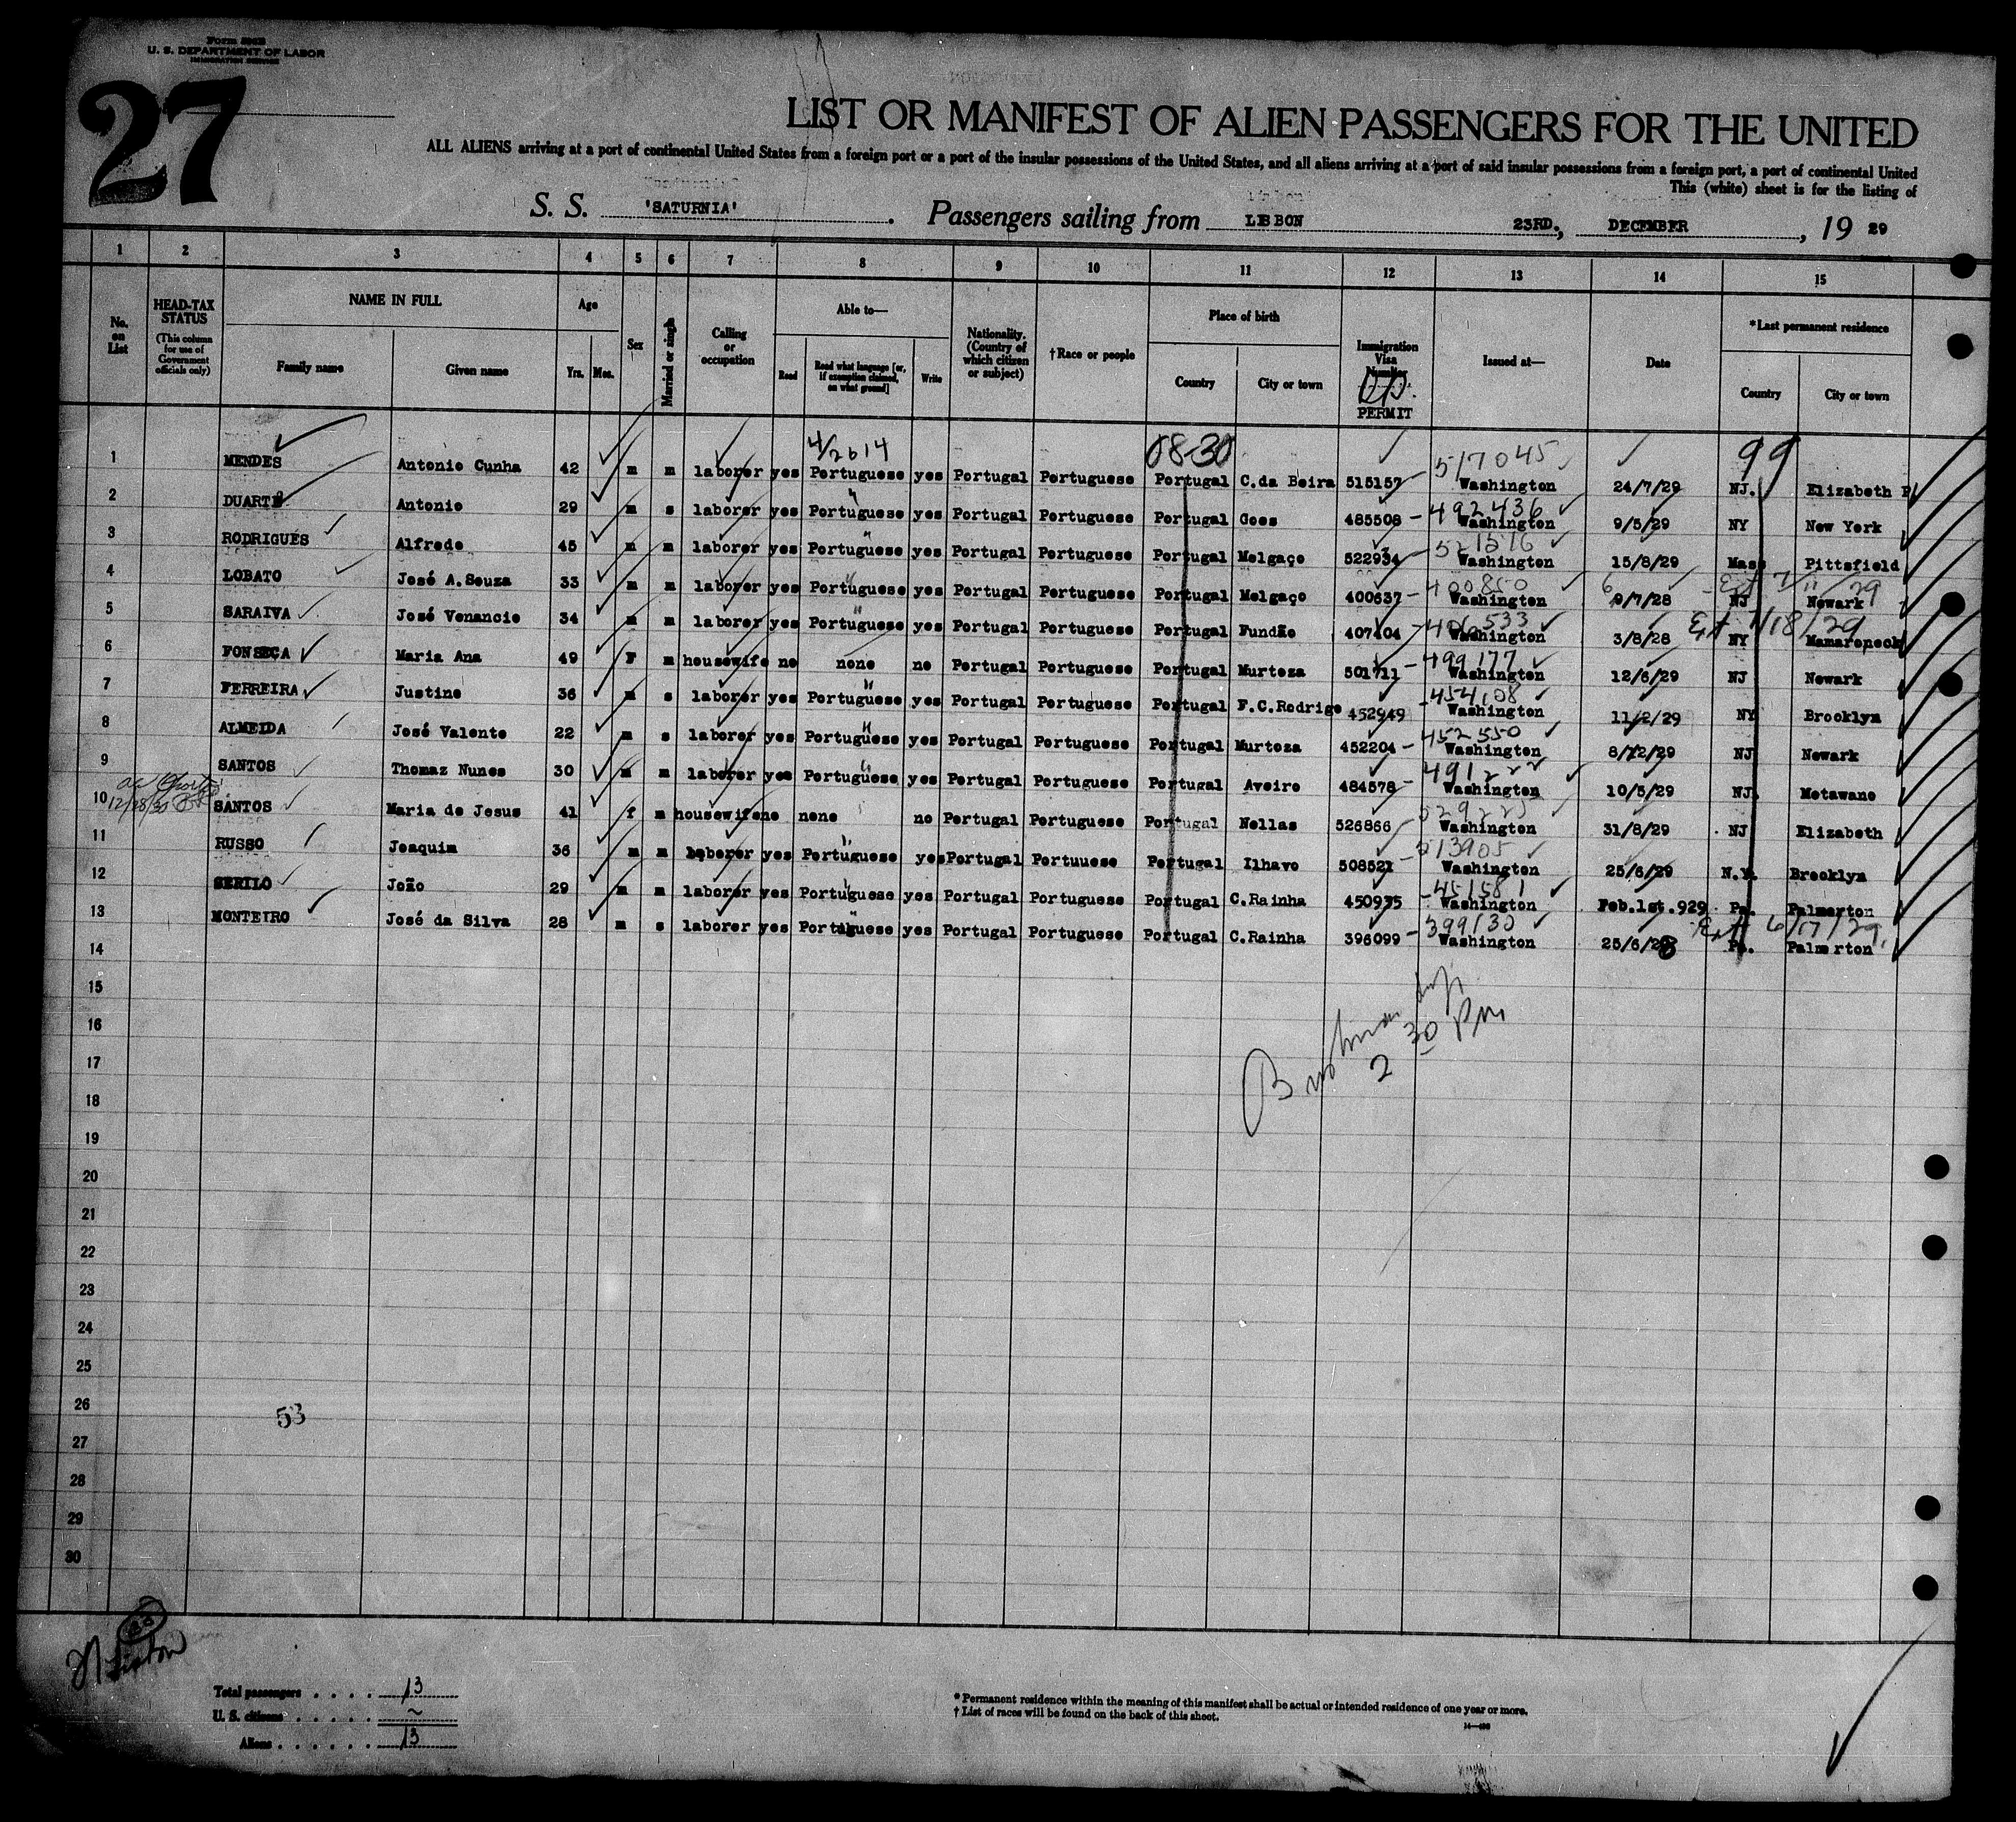 U. S. DEPARTMENT OF LABOR
27
LIST OR MANIFEST OF ALIEN PASSENGERS FOR THE UNITED
ALL ALIENS arriving at a port of continental United States from a foreign port or a port of the insular possessions of the United States, and all aliens arriving at a port of said insular possessions from a foreign port, a port of continental United
This (white) sheet is for the listing of
S. S. 'SATURNIA'. Passengers sailing from LISBON 23RD., DECEMBER, 19 29
1 2 3 4 5 6 7 8 9 10 11 12 13 14 15
No. on List
HEAD-TAX STATUS (This column for use of Government officials only)
NAME IN FULL Family name Given name
Age Yrs. Mos.
Sex
Married or single
Calling or occupation
Able to— Read Read what language [or, if exemption claimed, on what ground] Write
Nationality. (Country of which citizen or subject)
†Race or people
Place of birth Country City or town
Immigration Visa Number PERMIT
Issued at—
Date
*Last permanent residence Country City or town
4/2614 08-30 517045 99
1 MENDES Antonio Cunha 42 m m laborer yes Portuguese yes Portugal Portuguese Portugal C.da Beira 515157 Washington 24/7/29 NJ. Elizabeth P
492436
2 DUARTE Antonio 29 m s laborer yes Portuguese yes Portugal Portuguese Portugal Goes 485508 Washington 9/5/29 NY New York
3 RODRIGUES Alfredo 45 m m laborer yes Portuguese yes Portugal Portuguese Portugal Melgaço 522934 Washington 15/8/29 Mass Pittsfield
400850
4 LOBATO José A.Souza 33 m m laborer yes Portuguese yes Portugal Portuguese Portugal Melgaço 400637 Washington 9/7/28 NJ Newark
406533 Ext 7/18/29
5 SARAIVA José Venancio 34 m m laborer yes Portuguese yes Portugal Portuguese Portugal Fundão 407404 Washington 3/8/28 NY Mamaroneck
499177
6 FONSECA Maria Ana 49 F m housewife no none no Portugal Portuguese Portugal Murtoza 501711 Washington 12/6/29 NJ Newark
454108
7 FERREIRA Justino 36 m s laborer yes Portuguese yes Portugal Portuguese Portugal F.C.Rodrigo 452949 Washington 11/2/29 NY Brooklyn
452550
8 ALMEIDA José Valente 22 m s laborer yes Portuguese yes Portugal Portuguese Portugal Murtoza 452204 Washington 8/12/29 NJ Newark
491222
9 SANTOS Thomaz Nunes 30 m m laborer yes Portuguese yes Portugal Portuguese Portugal Aveiro 484578 Washington 10/5/29 NJ. Metawane
12/28/30
10 SANTOS Maria de Jesus 41 f m housewife no none no Portugal Portuguese Portugal Nellas 526866 Washington 31/8/29 NJ Elizabeth
513905
11 RUSSO Joaquim 36 m m laborer yes Portuguese yes Portugal Portuuese Portugal Ilhavo 508521 Washington 25/6/29 N.Y. Brooklyn
451581
12 SERILO João 29 m m laborer yes Portuguese yes Portugal Portuguese Portugal C.Rainha 450935 Washington Feb.1st.929 Pa. Palmerton
399130 Ext 6/17/29
13 MONTEIRO José da Silva 28 m s laborer yes Portuguese yes Portugal Portuguese Portugal C.Rainha 396099 Washington 25/6/28 Pa. Palmerton
14
15
16
2 30 PM
17
18
19
20
21
22
23
24
25
26
53
27
28
29
30
Total passengers . . . . 13
U. S. citizens . . . . . ~
Aliens . . . . . . 13
* Permanent residence within the meaning of this manifest shall be actual or intended residence of one year or more.
† List of races will be found on the back of this sheet.